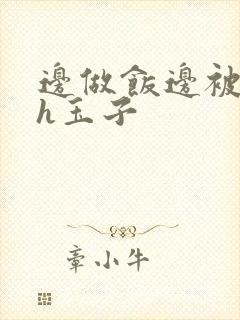 邊做飯邊被
h玉子
章小牛